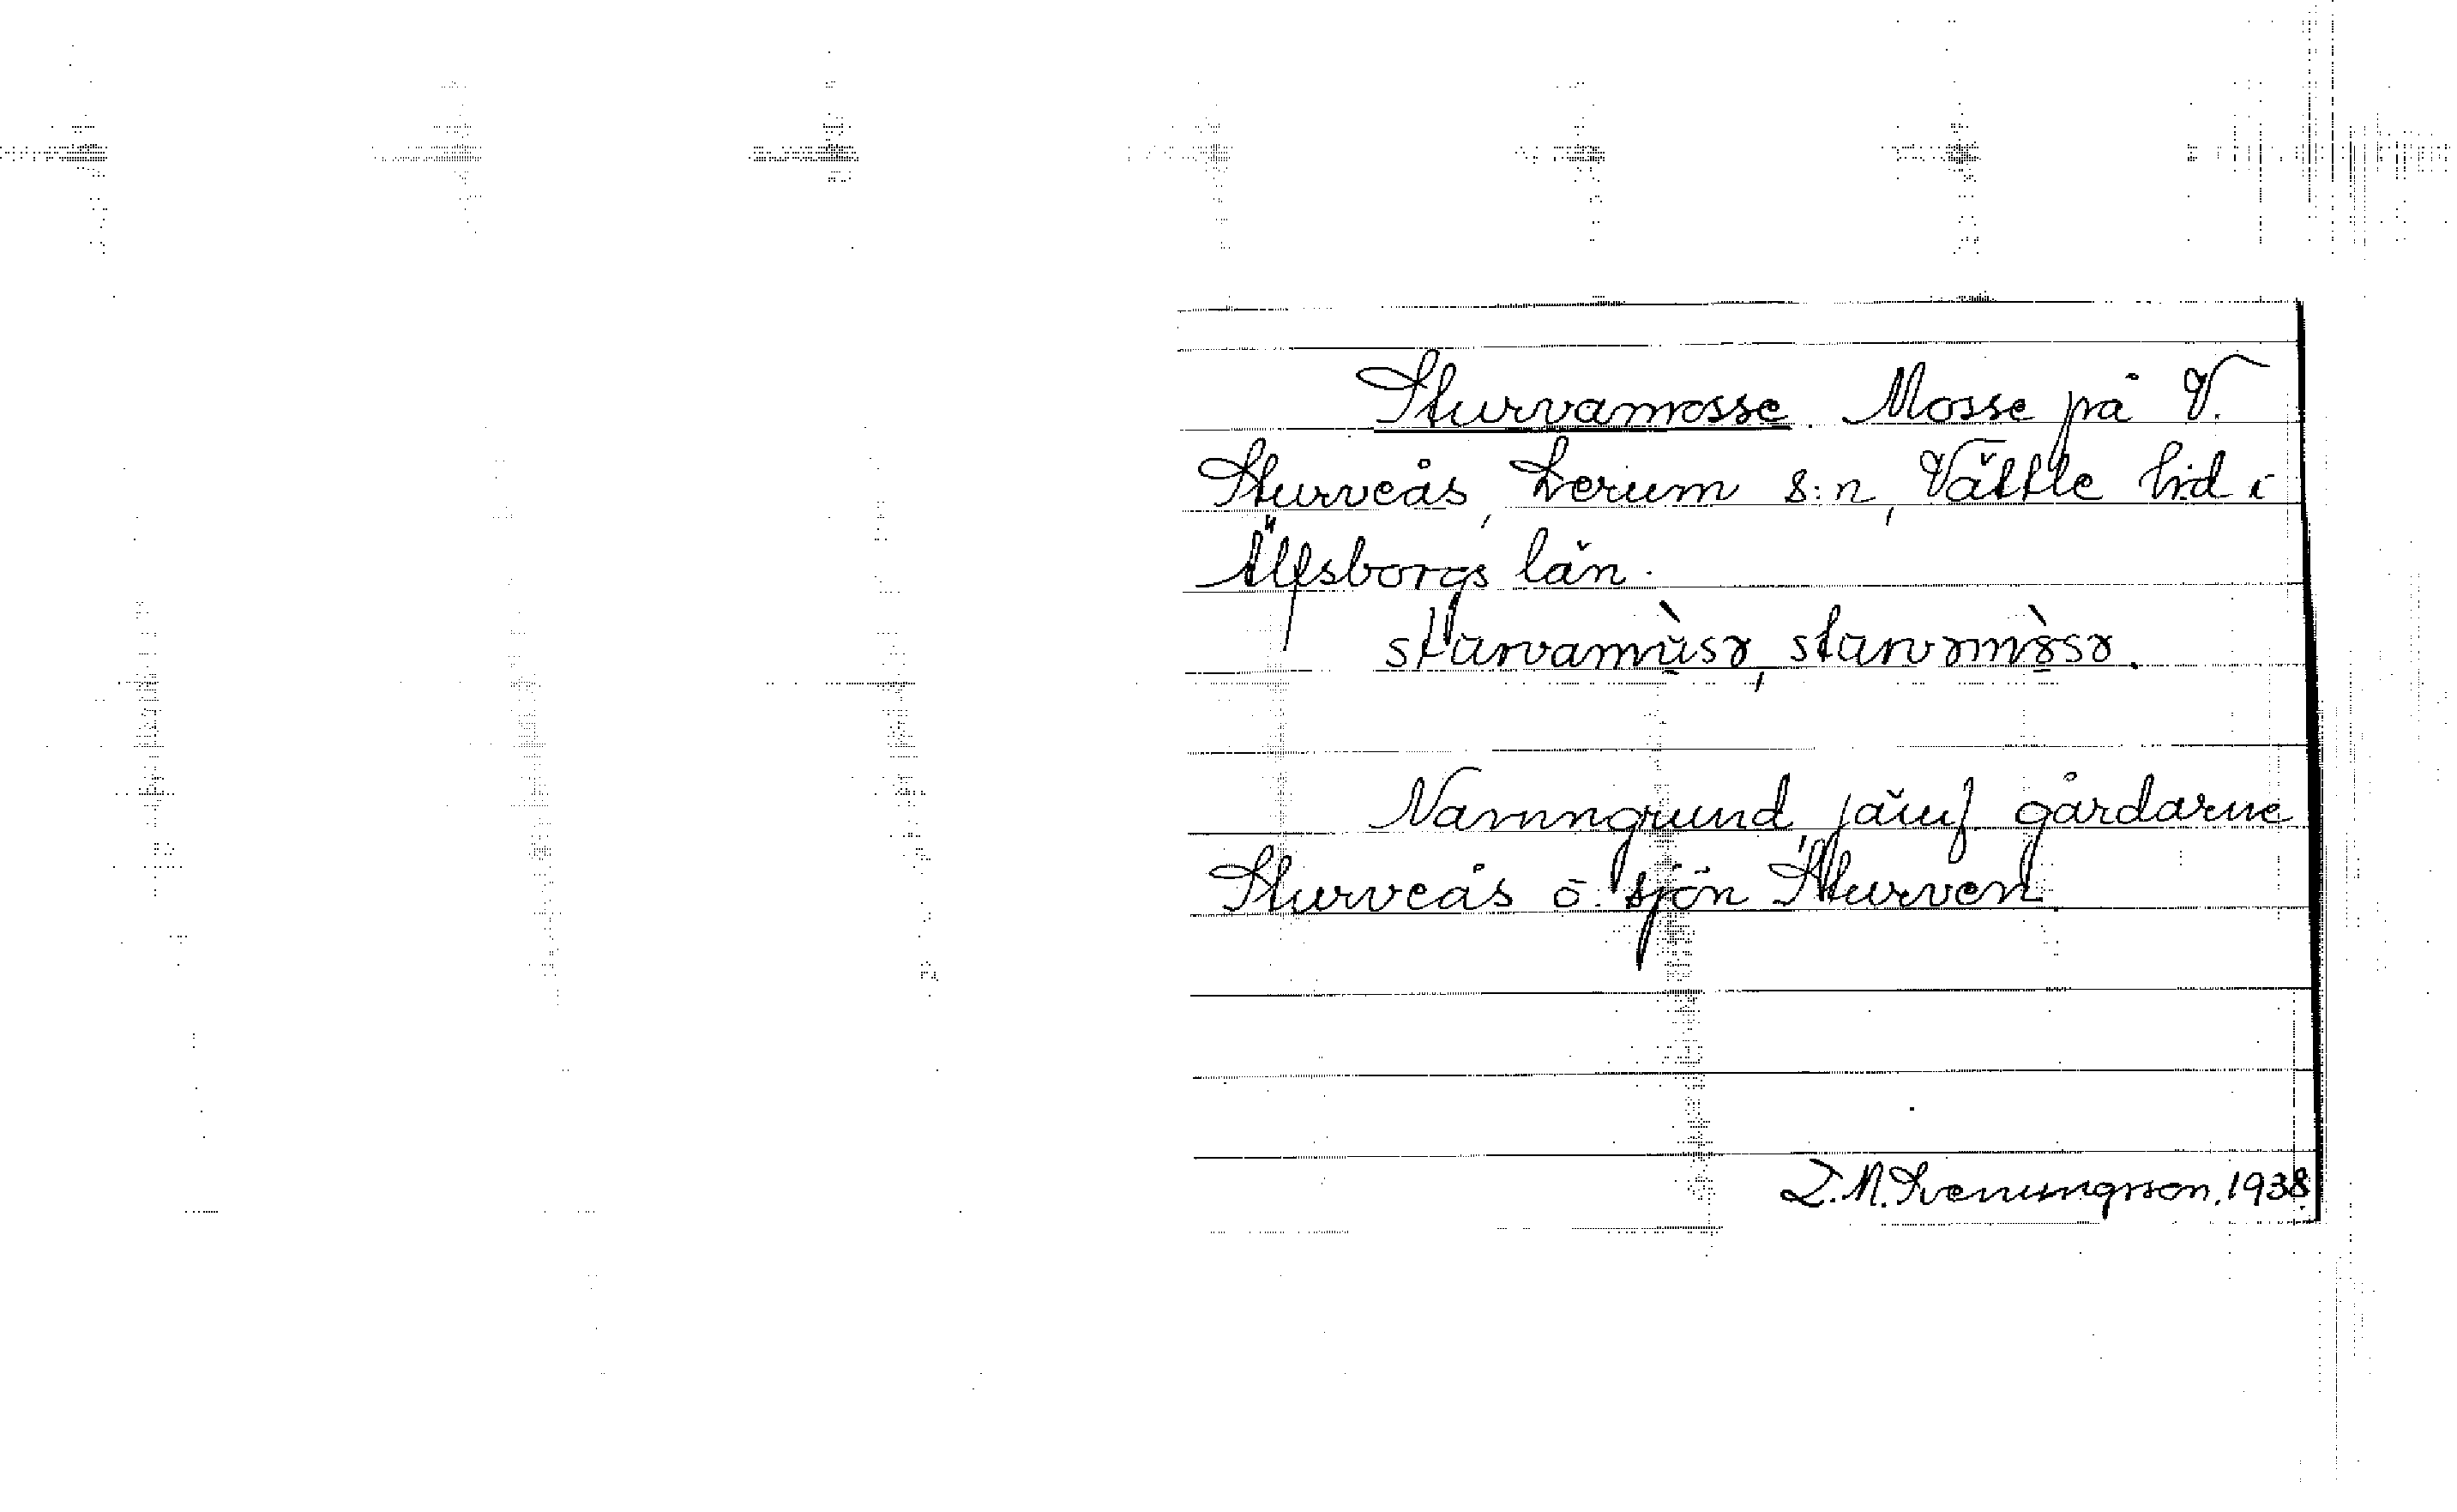 Sturvamosse. Mosse på V.
Sturveås, Lerum s:n, Vättle hrd i
Älfsborgs län.
Namngrund, jämf gårdarne
Sturveås o. sjön Sturven.
L.M. Svenungsson. 1938